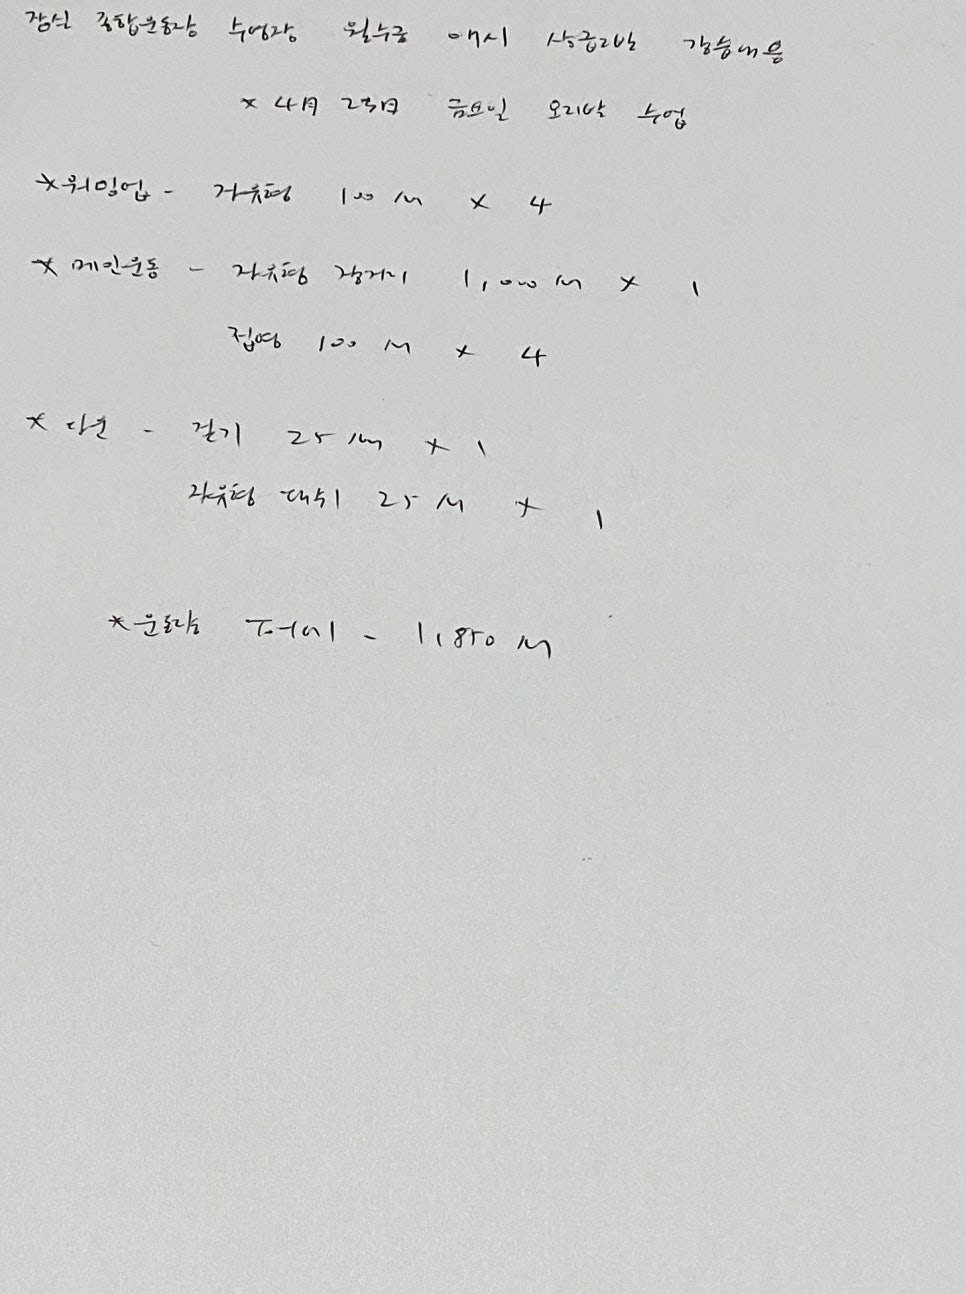 잠실 종합운동장 수영장 월수금 아침 상급2반 강습내용
* 4月 25日 금요일 오리발 수업
*워밍업 - 자유형 100 M x 4
* 메인운동 - 자유형 장거리 1,000 M x 1
접영 100 M x 4
* 다운 - 걷기 25 M x 1
자유형 대쉬 25 M x 1
*운동량 토탈 - 1,850 M